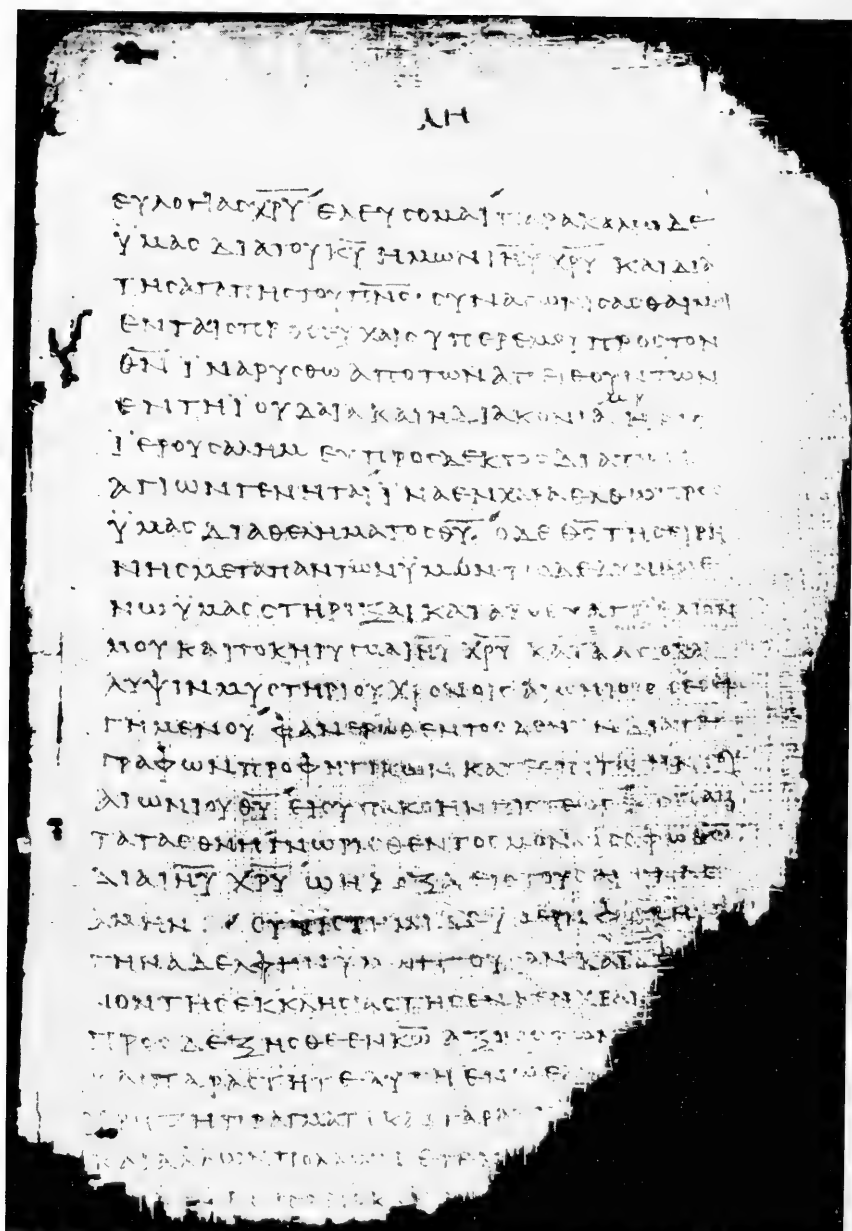 ΛΗ
ΕΥΛΟΓΙΑϹ Χ̅Ρ̅Υ̅ ΕΛΕΥϹΟΜΑΙ ΠΑΡΑΚΑΛΩ ΔΕ
ΥΜΑϹ ΔΙΑ ΤΟΥ Κ̅Υ̅ ΗΜΩΝ Ι̅Η̅Υ̅ Χ̅Ρ̅Υ̅ ΚΑΙ ΔΙΑ
ΤΗϹ ΑΓΑΠΗϹ ΤΟΥ Π̅Ν̅Ϲ̅· ϹΥΝΑΓΩΝΙϹΑϹΘΑΙ ΜΟΙ
ΕΝ ΤΑΙϹ ΠΡΟϹΕΥΧΑΙϹ ΥΠΕΡ ΕΜΟΥ ΠΡΟϹ ΤΟΝ
Θ̅Ν̅ ΪΝΑ ΡΥϹΘΩ ΑΠΟ ΤΩΝ ΑΠΕΙΘΟΥΝΤΩΝ
ΕΝ ΤΗ ΙΟΥΔΑΙΑ ΚΑΙ Η ΔΙΑΚΟΝΙΑ ΜΟΥ Η ΕΙϹ
ΪΕΡΟΥϹΑΛΗΜ ΕΥΠΡΟϹΔΕΚΤΟϹ ΔΙΑ ΤΩΝ
ΑΓΙΩΝ ΓΕΝΗΤΑΙ ΪΝΑ ΕΝ ΧΑΡΑ ΕΛΘΩ ΠΡΟϹ
ΥΜΑϹ ΔΙΑ ΘΕΛΗΜΑΤΟϹ Θ̅Υ̅· Ο ΔΕ Θ̅Ϲ̅ ΤΗϹ ΕΙΡΗ
ΝΗϹ ΜΕΤΑ ΠΑΝΤΩΝ ΥΜΩΝ ΤΩ ΔΕ ΔΥΝΑΜΕ
ΝΩ ΥΜΑϹ ϹΤΗΡΙΞΑΙ ΚΑΤΑ ΤΟ ΕΥΑΓΓΕΛΙΟΝ
ΜΟΥ ΚΑΙ ΤΟ ΚΗΡΥΓΜΑ Ι̅Η̅Υ̅ Χ̅Ρ̅Υ̅ ΚΑΤΑ ΑΠΟΚΑ
ΛΥΨΙΝ ΜΥϹΤΗΡΙΟΥ ΧΡΟΝΟΙϹ ΑΙΩΝΙΟΙϹ ϹΕϹΕΙ
ΓΗΜΕΝΟΥ ΦΑΝΕΡΩΘΕΝΤΟϹ ΔΕ ΝΥΝ ΔΙΑ ΤΕ
ΓΡΑΦΩΝ ΠΡΟΦΗΤΙΚΩΝ ΚΑΤ ΕΠΙΤΑΓΗΝ ΤΟΥ
ΑΙΩΝΙΟΥ Θ̅Υ̅ ΕΙϹ ΥΠΑΚΟΗΝ ΠΙϹΤΕΩϹ ΕΙϹ ΠΑΝ
ΤΑ ΤΑ ΕΘΝΗ ΓΝΩΡΙϹΘΕΝΤΟϹ ΜΟΝΩ ϹΟΦΩ Θ̅Ω̅
ΔΙΑ Ι̅Η̅Υ̅ Χ̅Ρ̅Υ̅ Ω Η ΔΟΞΑ ΕΙϹ ΤΟΥϹ
ΑΜΗΝ ϹΥΝΙϹΤΗΜΙ ΔΕ
ΤΗΝ ΑΔΕΛΦΗΝ ΥΜΩΝ ΟΥϹΑΝ ΚΑΙ
ΚΟΝΟΝ ΤΗϹ ΕΚΚΛΗϹΙΑϹ ΤΗϹ ΕΝ
ΠΡΟϹΔΕΞΗϹΘΕ ΕΝ Κ̅Ω̅ ΑΞΙΩϹ ΤΩΝ
ΚΑΙ ΠΑΡΑϹΤΗΤΕ ΑΥΤΗ ΕΝ
ΠΡΑΓΜΑΤΙ ΚΑΙ ΓΑΡ
ΚΑΙ ΑΛΛΩΝ ΠΟΛΛΩΝ